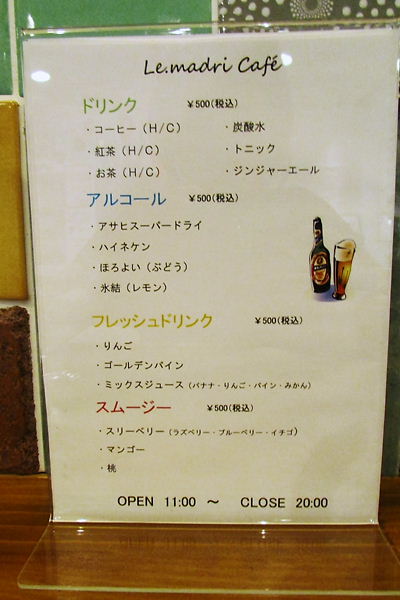 Le.madri Café
ドリンク ￥500(税込)
・コーヒー（H/C） ・炭酸水
・紅茶（H/C） ・トニック
・お茶（H/C） ・ジンジャーエール
アルコール ￥500(税込)
・アサヒスーパードライ
・ハイネケン
・ほろよい（ぶどう）
・氷結（レモン）
フレッシュドリンク ￥500(税込)
・りんご
・ゴールデンパイン
・ミックスジュース（バナナ・りんご・パイン・みかん）
スムージー ￥500(税込)
・スリーベリー（ラズベリー・ブルーベリー・イチゴ）
・マンゴー
・桃
OPEN 11:00 ～ CLOSE 20:00